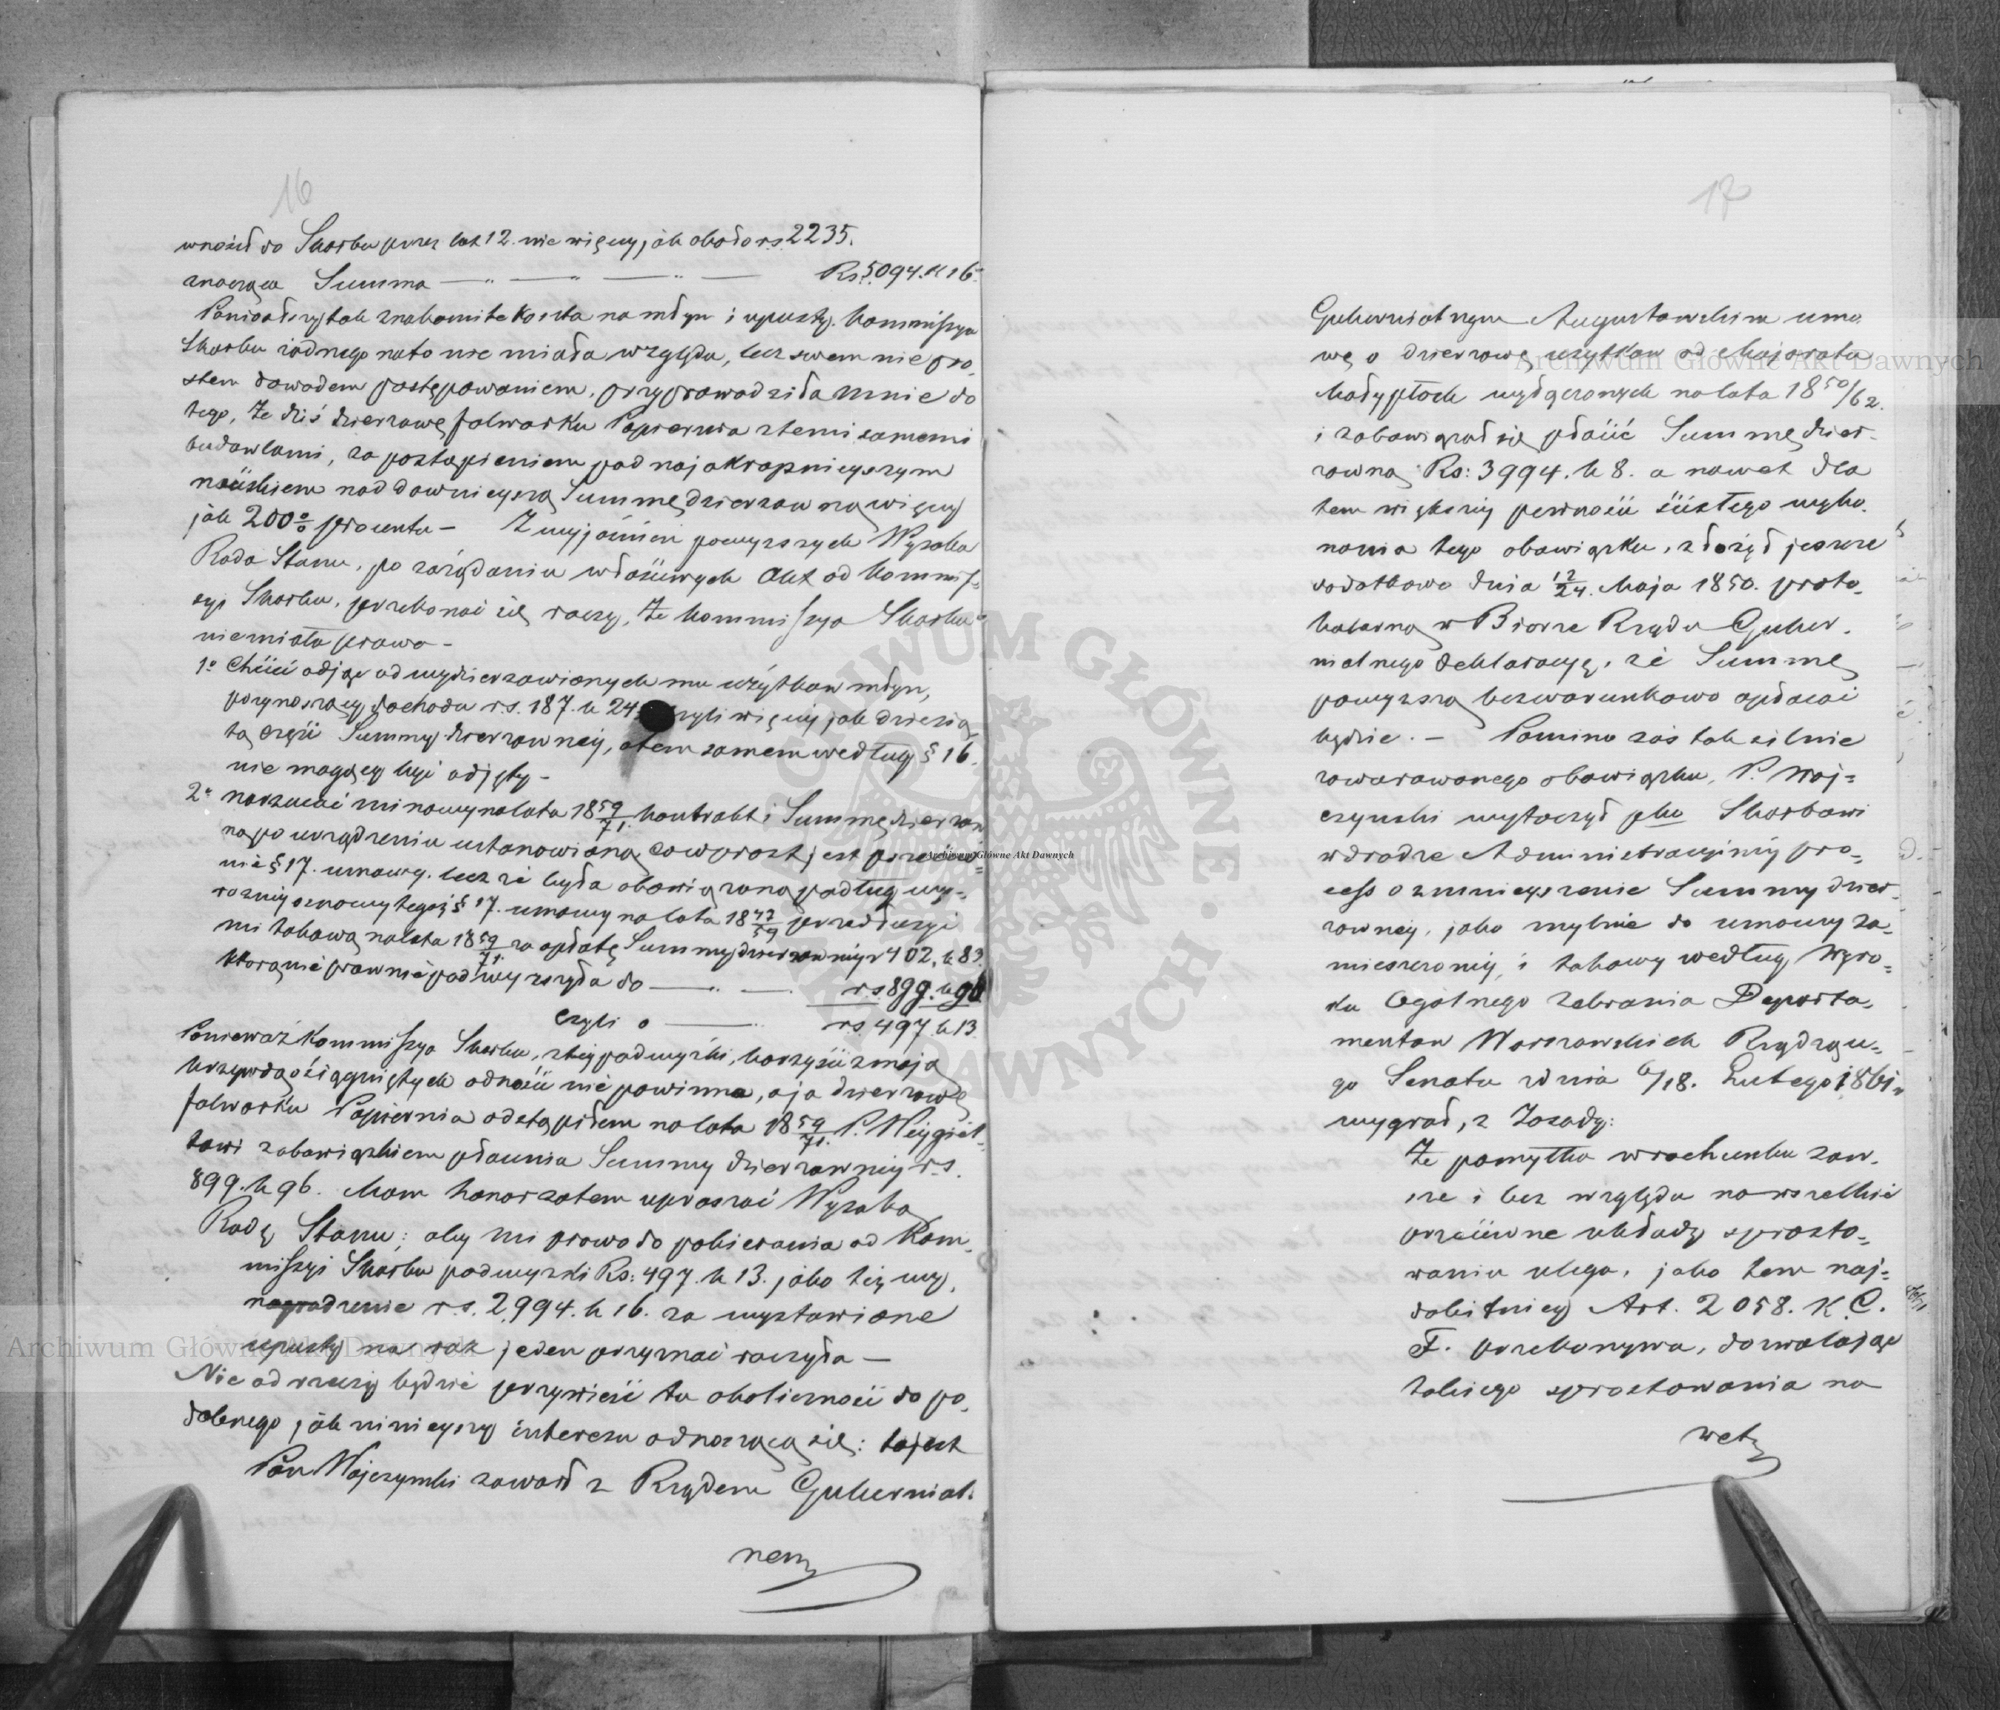 16
wnosił do Skarbu przez lat 12. nie więcej jak około rs. 2235.
znacząca Summa — " — " — " — Rs. 5094. k 16.
Ponioadszy tak znakomite koszta na młyn i upusty. Kommissya
Skarbu żadnego na to nie miała względu, lecz swem nie pro-
stem dowodem postępowaniem, przyprowadziła mnie do
tego, że dziś dzierżawę folwarku Papiernia z temi samemi
budowlami, za postąpieniem pod najokropniejszym
naciskiem nad dawniejszą Summę dzierzawną więcej
jak 200 % procentu — Z wyjaśnień powyższych Wysoka
Rada Stanu, po zażądaniu właściwych Akt od Kommis-
syi Skarbu, przekonać się raczy, że Kommissya Skarbu
nie miała prawa —
1o Chcieć odjąć od wydzierzawionych mu użytków młyn,
przynoszący dochodu rs. 187. k 24 czyli więcej jak dziesią-
tą część Summy dzierzawnej, a tem samem według § 16.
nie mogący być odjęty —
2o narzucać mi nowy na lata 1859/71. kontrakt i Summę dzierzaw-
ną po urządzeniu ustanowioną, co wprost jest przeciw-
nie § 17. umowy. lecz że była obowiązaną podług wy-
raźnej osnowy tegoż § 17. umowy na lata 1847/59 przedłużyć
mi takową na lata 1859/71. za opłatę Summy dzierzawnej r 402. k 83.
którą nie prawnie podwyższyła do — " — rs 899. k 96.
czyli o — " rs 497. k 13.
Ponieważ Kommissya Skarbu, z tej podwyżki, korzyści z moją
krzywdą osiągniętych odnosić nie powinna, a ja dzierzawę
folwarku Papiernia odstąpiłem na lata 1859/71. P. Weygiel-
towi z obowiązkiem płacenia Summy dzierzawnej rs.
899. k 96. Mam honor zatem upraszać Wysoką
Radę Stanu; aby mi prawo do pobierania od Kom-
missyi Skarbu podwyżki Rs: 497. k 13. jako też wy-
nagrodzenie rs. 2,994. k 16. za wystawione
upusty na raz jeden przyznać raczyła —
Nie od rzeczy będzie przywieść tu okoliczność do po-
dobnego jak niniejszy interesu odnoszącą się: to jest
Pan Wojczyński zawarł z Rządem Gubernial-
nem
17
Gubernialnym Augustowskim umo-
wę o dzierzawę użytków od Majoratu
Małypłock wyłączonych na lata 1850/62.
i zobowiązał się płacić Summę dzier-
zawną Rs: 3994. k 8. a nawet dla
tem większej pewności ścisłego wyko-
nania tego obowiązku, złożył jeszcze
dodatkowo dnia 12/24. Maja 1850. proto-
kularną w Biorze Rządu Guber-
nialnego deklaracyę, że Summę
powyższą bezwarunkowo opłacać
będzie. — Pomimo zaś tak silnie
zawarowanego obowiązku, P. Woj-
czyński wytoczył pko Skarbowi
w drodze Administracyjnej pro-
cess o zmniejszenie Summy dzier-
zawnej, jako mylnie do umowy za-
mieszczonej, i takowy według Wyro-
ku Ogólnego Zebrania Departa-
mentów Warszawskich Rządzące-
go Senatu z dnia 6/18. Lutego 1861 r.
wygrał, z Zasady:
Że pomyłka w rachunku zaw-
sze i bez względu na wszelkie
przeciwne układy sprosto-
waniu ulega, jako tem naj-
dobitniej Art. 2058. K. C.
F. przekonywa, dozwalając
takiego sprostowania na-
wet
Archiwum Główne Akt Dawnych
Archiwum Główne Akt Dawnych
Archiwum Główne Akt Dawnych
ARCHIWUM GŁÓWNE AKT DAWNYCH